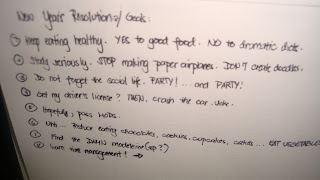 New Year Resolutions/ Goals:
① Keep eating healthy. YES to good food. NO to dramatic diets.
② Study seriously. STOP making paper airplanes. DON'T create doodles.
③ Do not forget the social life. PARTY! ... and PARTY!
④ Get my driver's license? THEN, crash the car. Joke.
⑤ Hopefully, pass
⑥ Uhh... Reduce eating chocolates, cookies, cupcakes, ... EAT VEGETABLES
⑦ Find the DAMN
⑧ learn time management! →